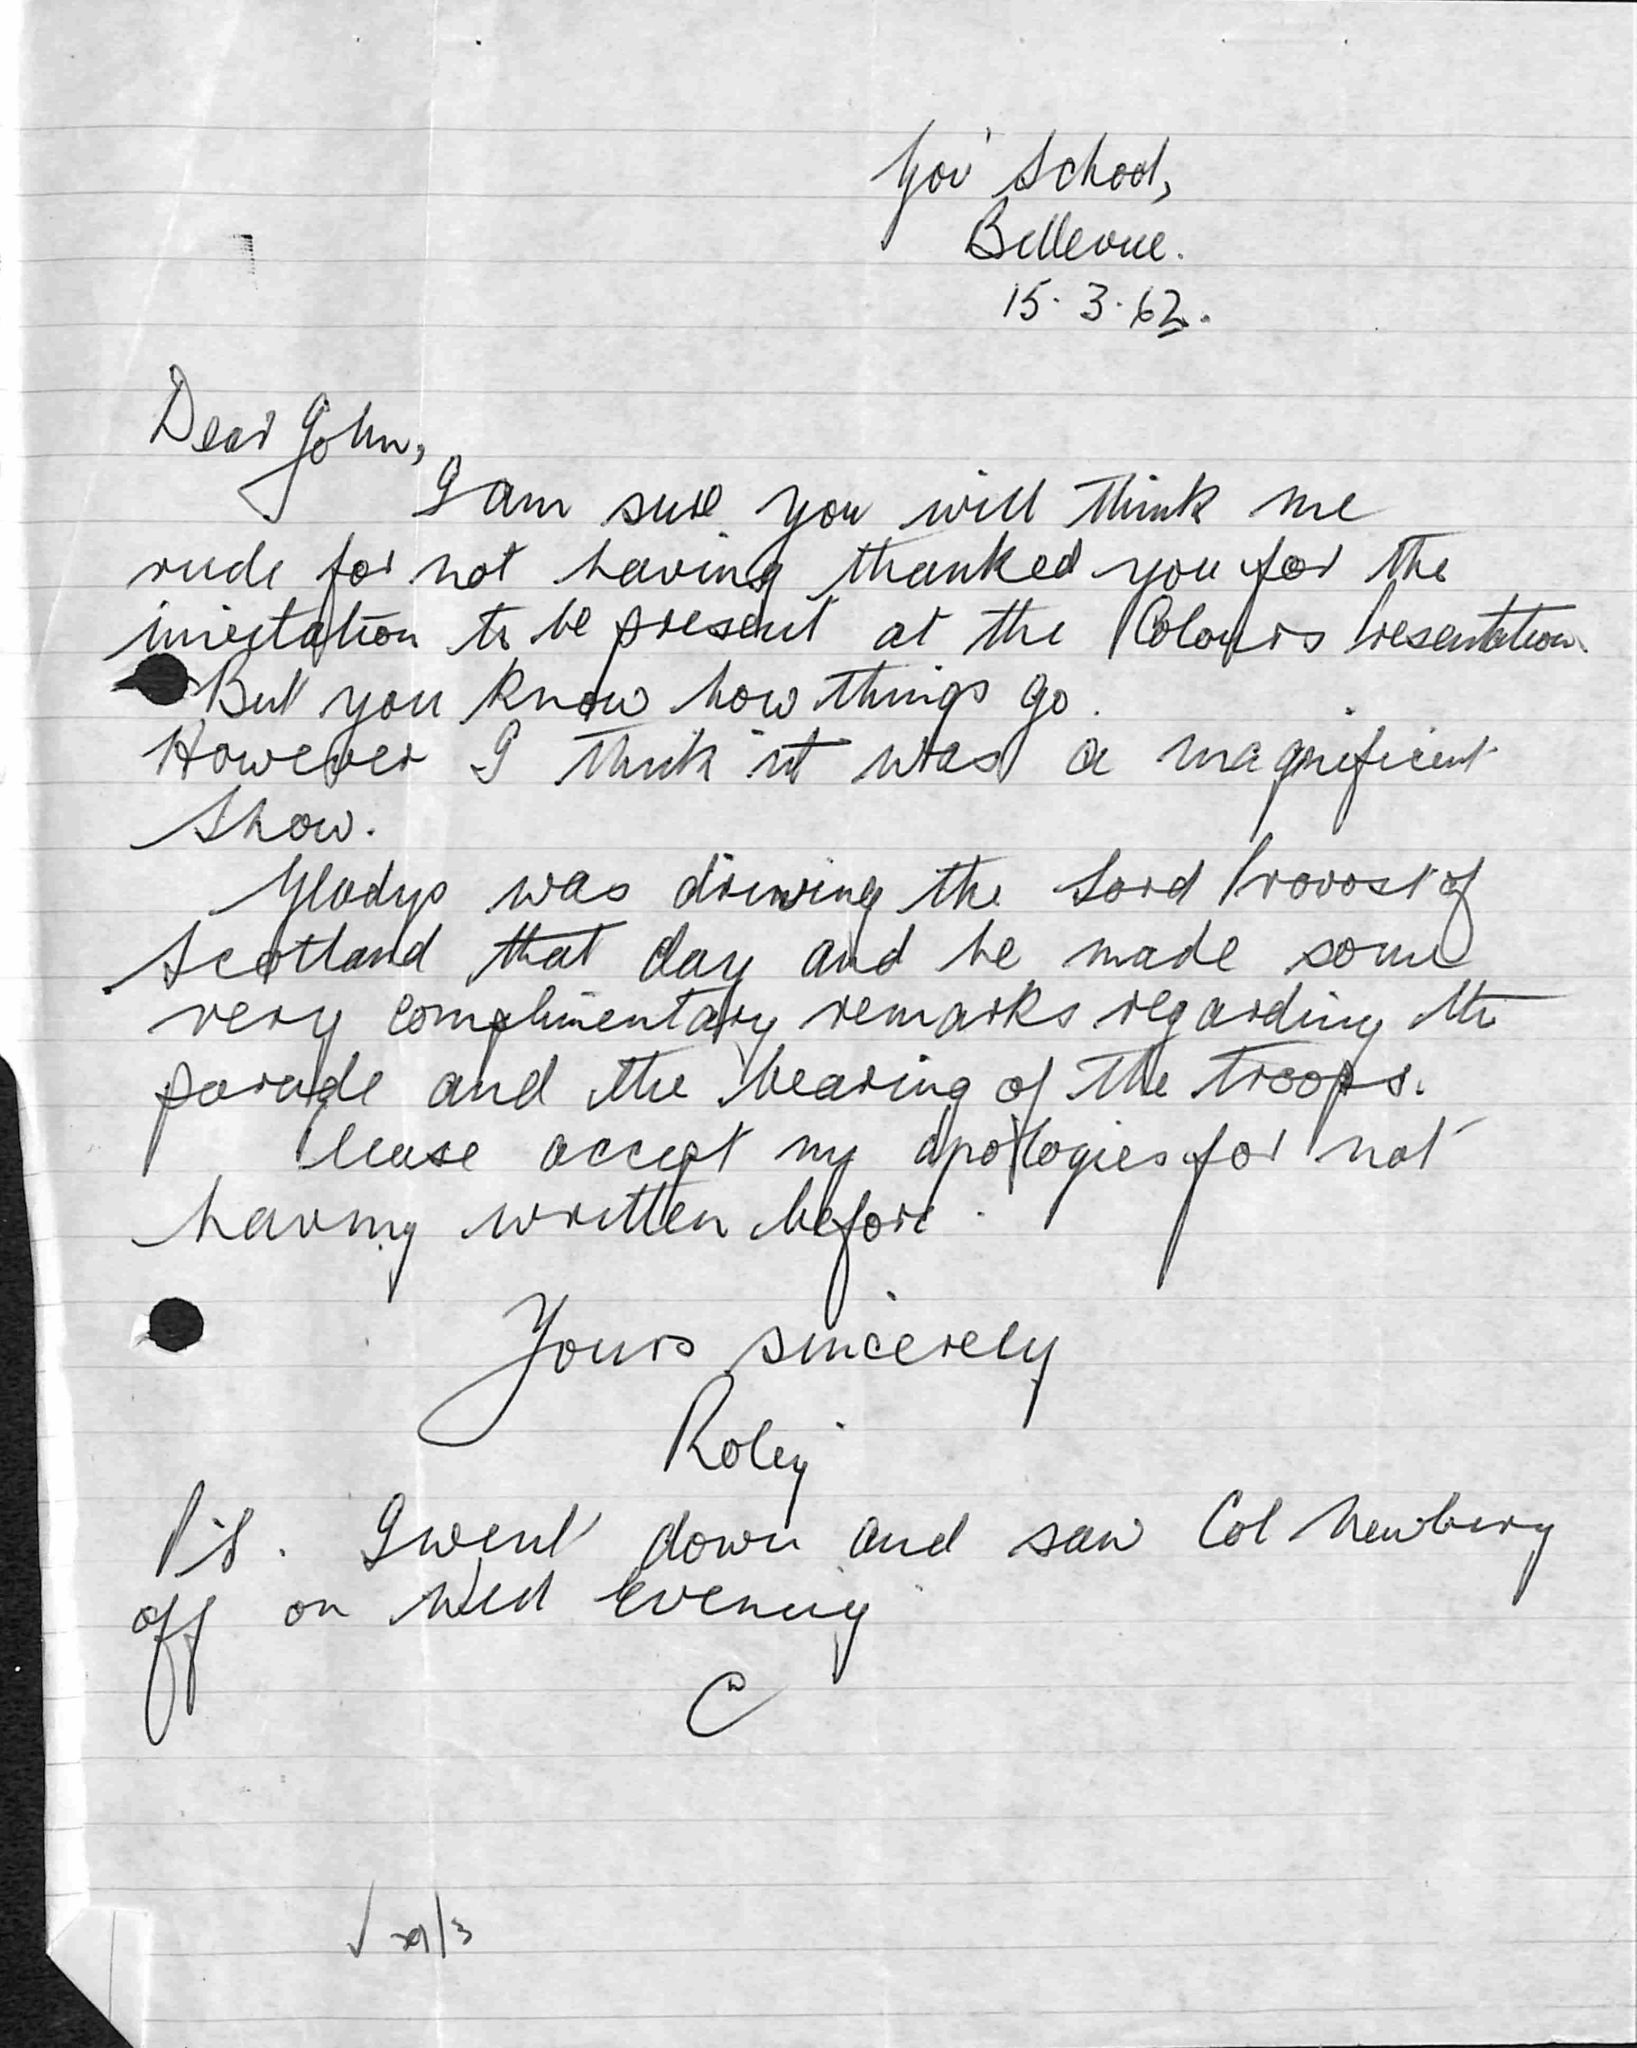 Gov' School,
Bellevue.
15. 3. 62.
Dear John,
I am sure you will think me
rude for not having thanked you for the
invitation to be present at the Colours Presentation.
But you know how things go.
However I think it was a magnificent
show.
Gladys was driving the Lord Provost of
Scotland that day and he made some
very complimentary remarks regarding the
parade and the bearing of the troops.
Please accept my apologies for not
having written before.
Yours sincerely
Roley
P.S. I went down and saw Col Newbery
off on Wed evening
C
√ 29/3